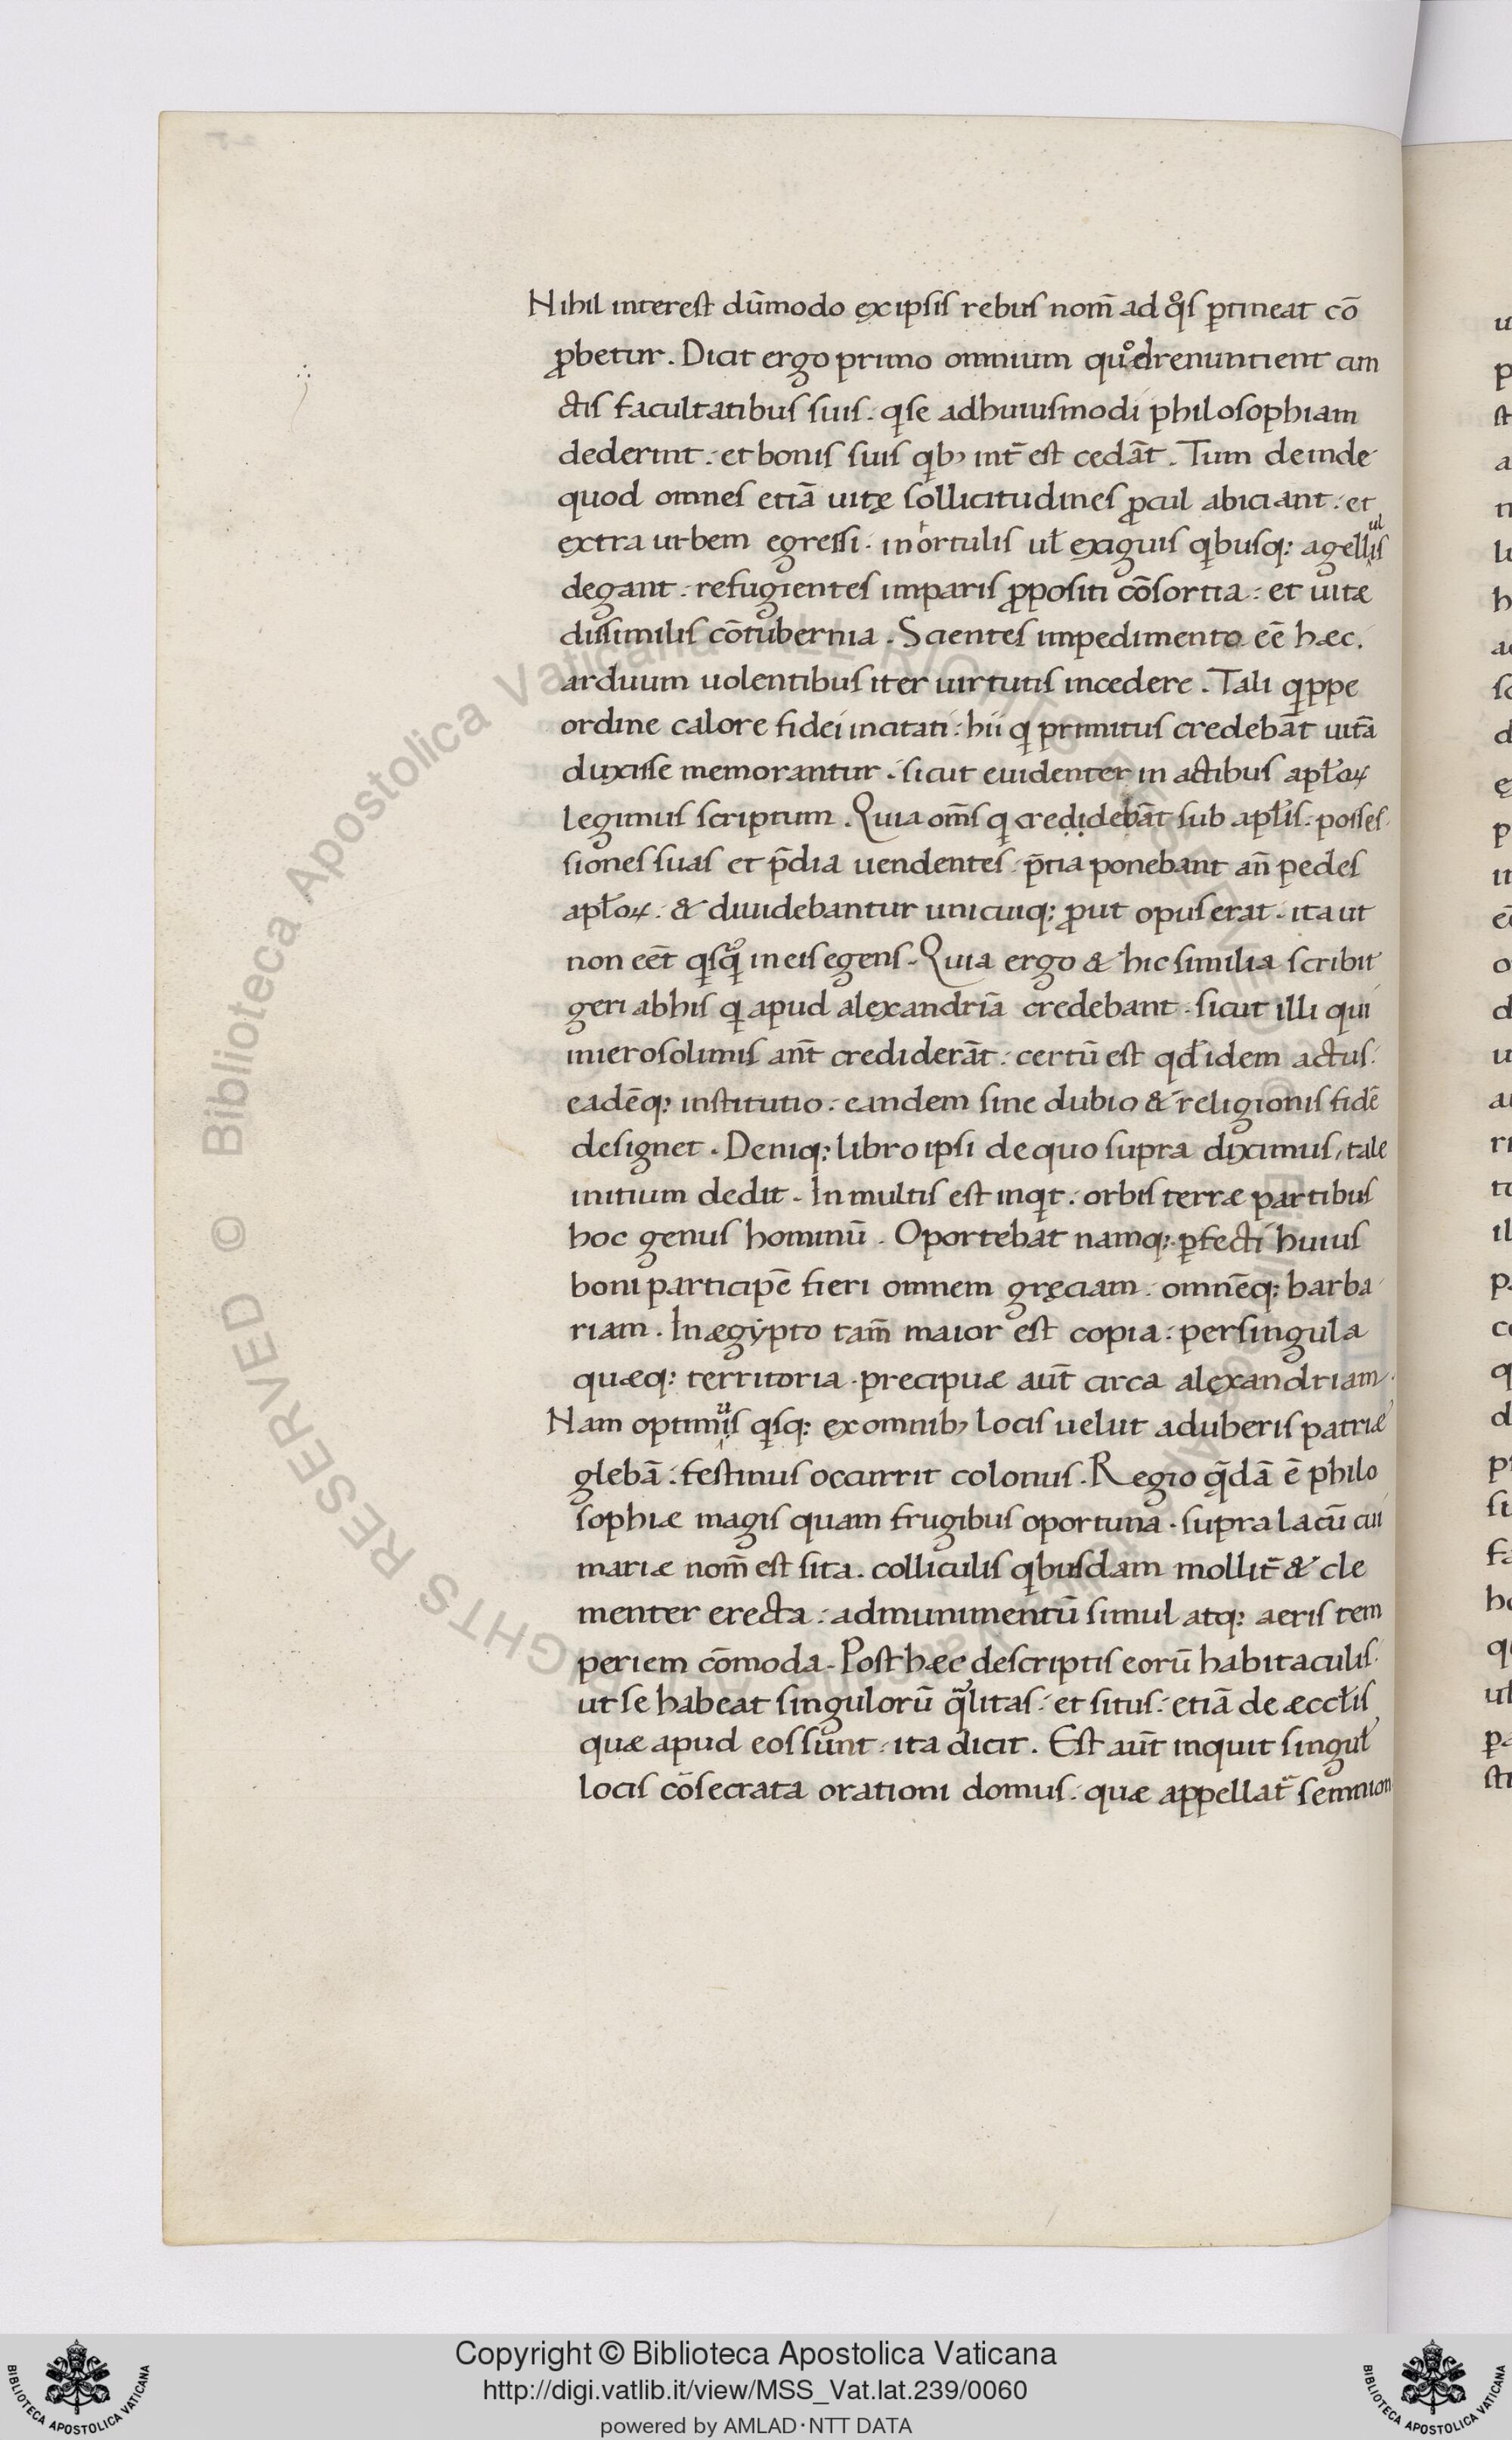 Nihil interest dūmodo ex ipsis rebus nom̄ ad qͦs ꝑtineat cō
ꝓbetur. Dicit ergo primo omnium quod renuntient cun
ctis facultatibus suis. q̣ se ad huiusmodi philosophiam
dederint. et bonis suis qib; int̄ est cedāt. Tum deinde
quod omnes etiā uitę sollicitudines ꝓcul abiciant. et
extra urbem egressi. in ortulis ul̄ exiguis qibusq; agellulis
degant. refugientes imparis ꝓpositi cōsortia. et uitæ
dissimilis cōtubernia. Scientes impedimento eē hæc.
arduum uolentibus iter uirtutis incedere. Tali qippe
ordine calore fidei incitati. hii qi primitus credebāt uitā
duxisse memorantur. sicut euidenter in actibus apl̄oꝝ
legimus scriptum. Quia om̄s qi credidebāt sub apl̄is. posses
siones suas et p̄dia uendentes. p̄tia ponebant an̄ pedes
apl̄oꝝ. & diuidebantur unicuiq; ꝓut opus erat. ita ut
non eēt qisqͣ in eis egens. Quia ergo & hic similia scribit
geri ab his qi apud alexandriā credebant. sicut illi qui
in ierosolimis ant̄ crediderāt. certū est qd̄ idem actus.
eadēq; institutio. eandem sine dubio & religionis fidē
designet. Deniq; libro ipsi de quo supra diximus, tale
initium dedit. In multis est inqit. orbis terræ partibus
hoc genus hominū. Oportebat namq; ꝑfecti huius
boni participē fieri omnem gręciam. omnēq; barba
riam. In ægypto tam̄ maior est copia. per singula
quæq; territoria. precipuæ aut̄ circa alexandriam.
Nam optimus qisq; ex omnib; locis uelut ad uberis patriæ
glebā. festinus occurrit colonus. Regio q̄dā ē philo
sophiæ magis quam frugibus oportuna. supra lacū cui
mariæ nom̄ est sita. colliculis qibusdam mollit̄ & cle
menter erecta. ad munimentū simul atq; aeris tem
periem cōmoda. Post hæc descriptis eorū habitaculis.
ut se habeat singulorū qͣlitas. et situs. etiā de æccl̄is
quæ apud eos sunt. ita dicit. Est aut̄ inquit singul̄
locis cōsecrata orationi domus. quæ appellat̄ semnion
Biblioteca Apostolica Vaticana ALL RIGHTS RESERVED ©
Copyright © Biblioteca Apostolica Vaticana
http://digi.vatlib.it/view/MSS_Vat.lat.239/0060
powered by AMLAD·NTT DATA
BIBLIOTECA APOSTOLICA VATICANA
BIBLIOTECA APOSTOLICA VATICANA